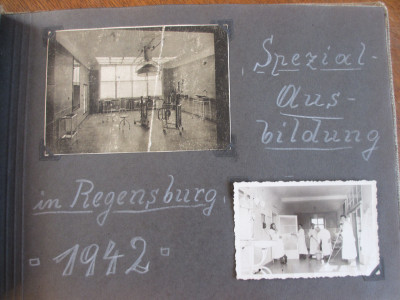 Spezial-
Aus-
bildung
in Regensburg.
1942